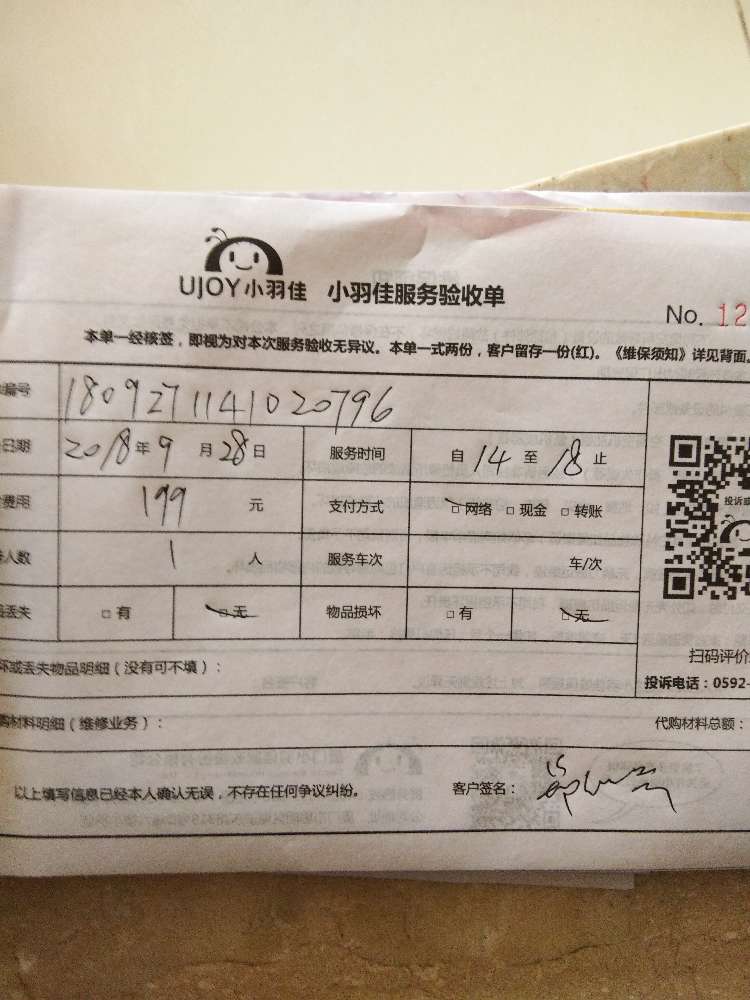 UJOY小羽佳 小羽佳服务验收单
No. 12
本单一经核签，即视为对本次服务验收无异议。本单一式两份，客户留存一份(红)。《维保须知》详见背面。
编号 1809271141020796
日期 2018年9月28日 服务时间 自14至18止
费用 199 元 支付方式 □网络 □现金 □转账
人数 1 人 服务车次 车/次
丢失 □有 □无 物品损坏 □有 □无
投诉或
扫码评价
坏或丢失物品明细（没有可不填）：
投诉电话：0592-
购材料明细（维修业务）：
代购材料总额：
以上填写信息已经本人确认无误，不存在任何争议纠纷。
客户签名：